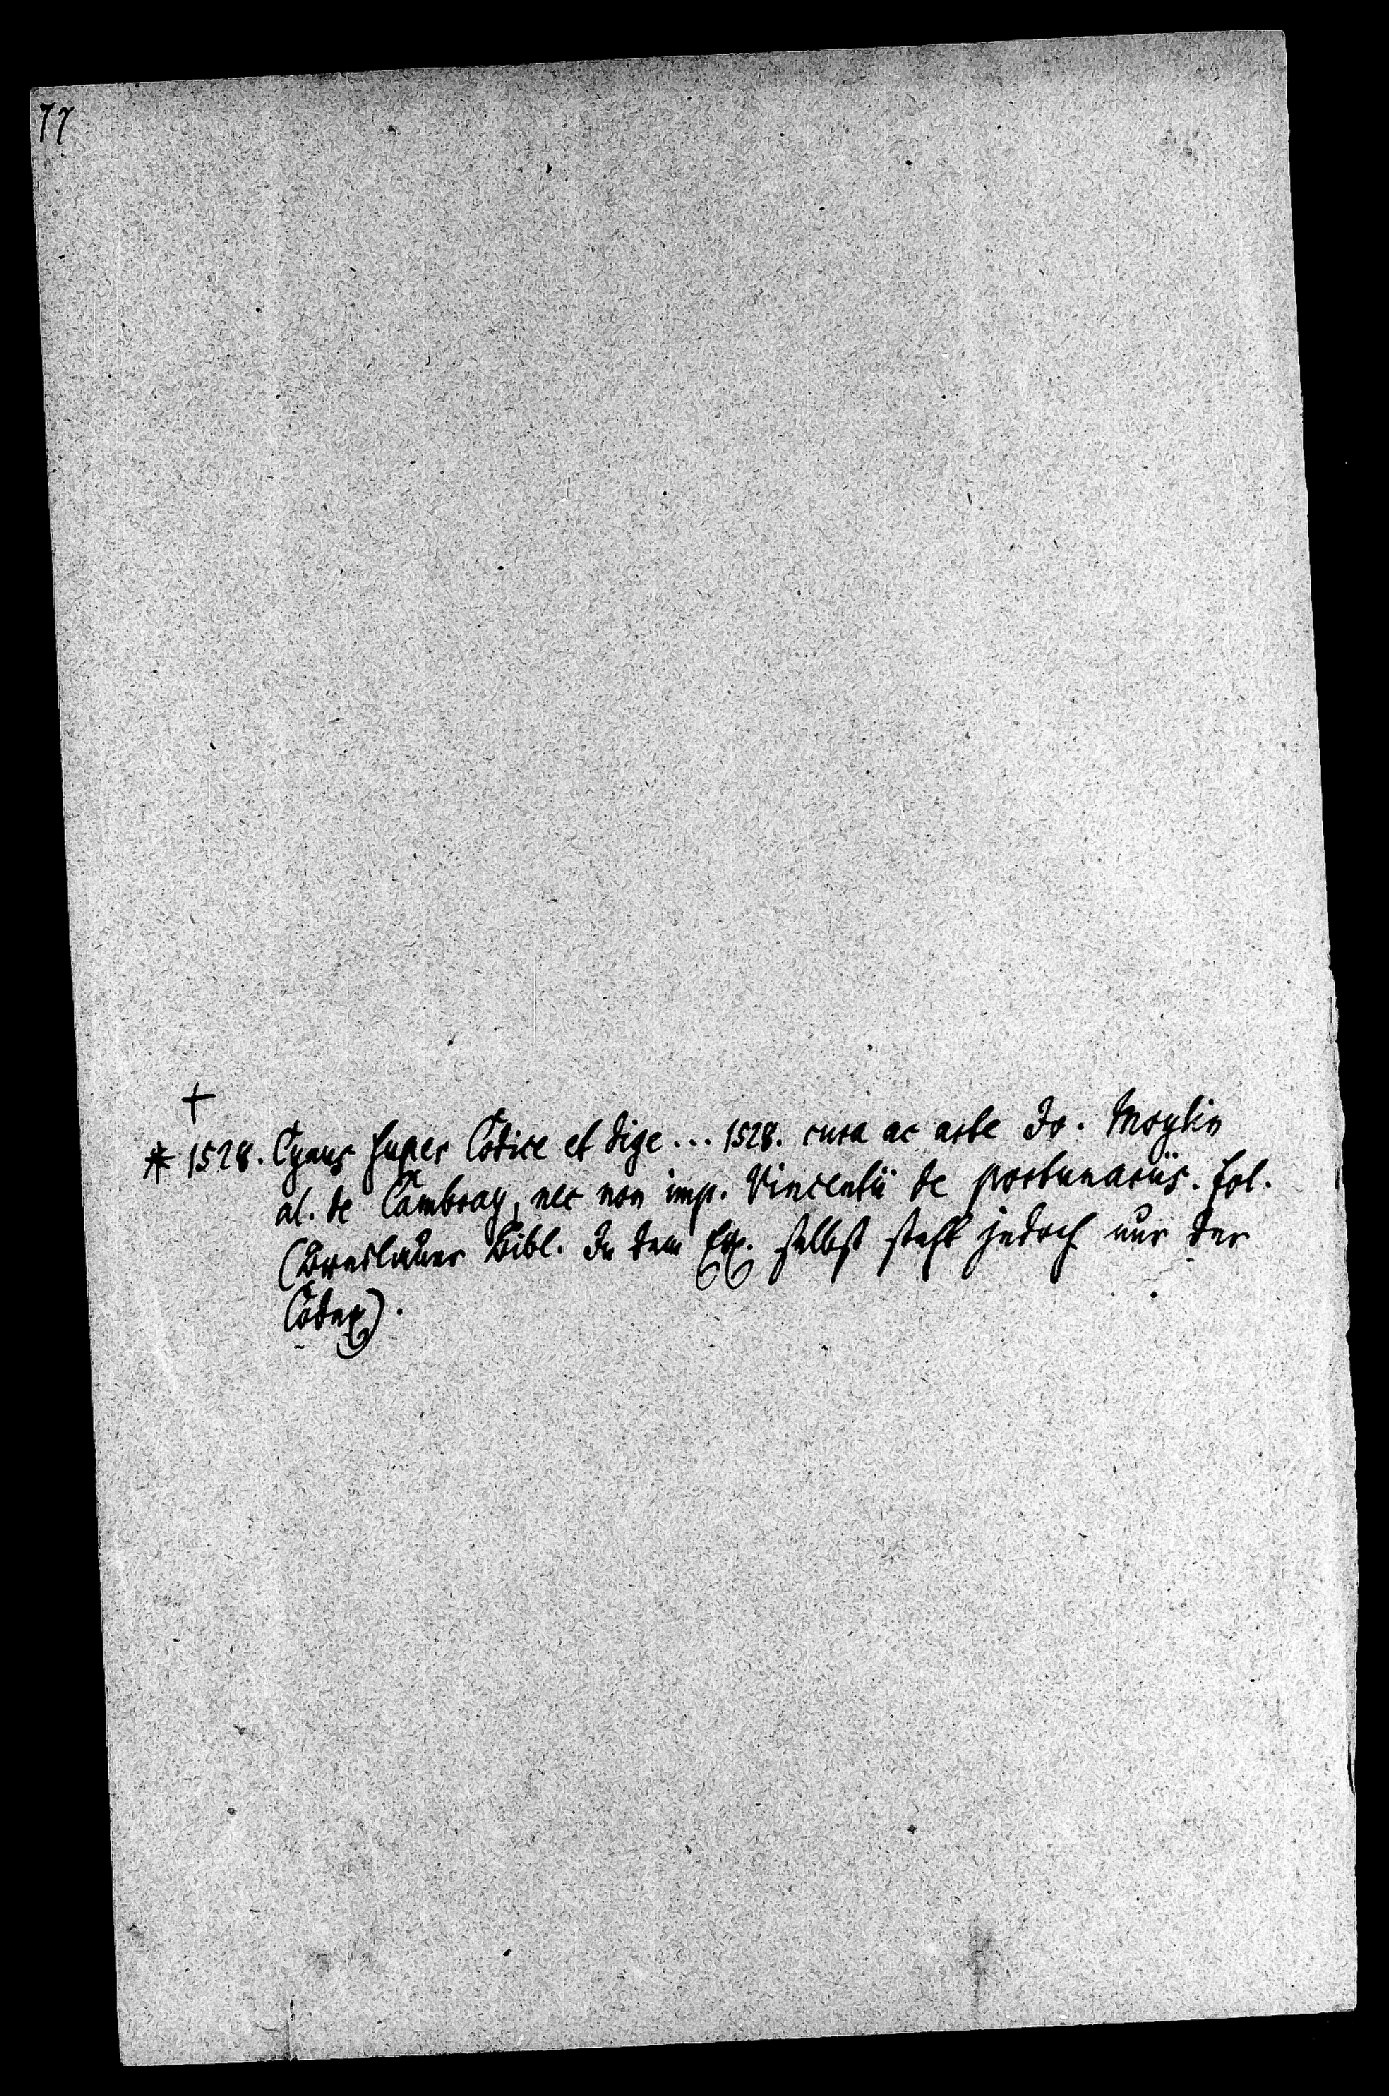 77
+
* 1528. Cynus super Codice et dige ... 1528. cura ac arte Jo. Moylin
al. de Cambray, nec non imp. Vincentii de portunariis. fol.
(Breslauer Bibl. In dem Ex. selbst steht jedoch nur der
Codex).